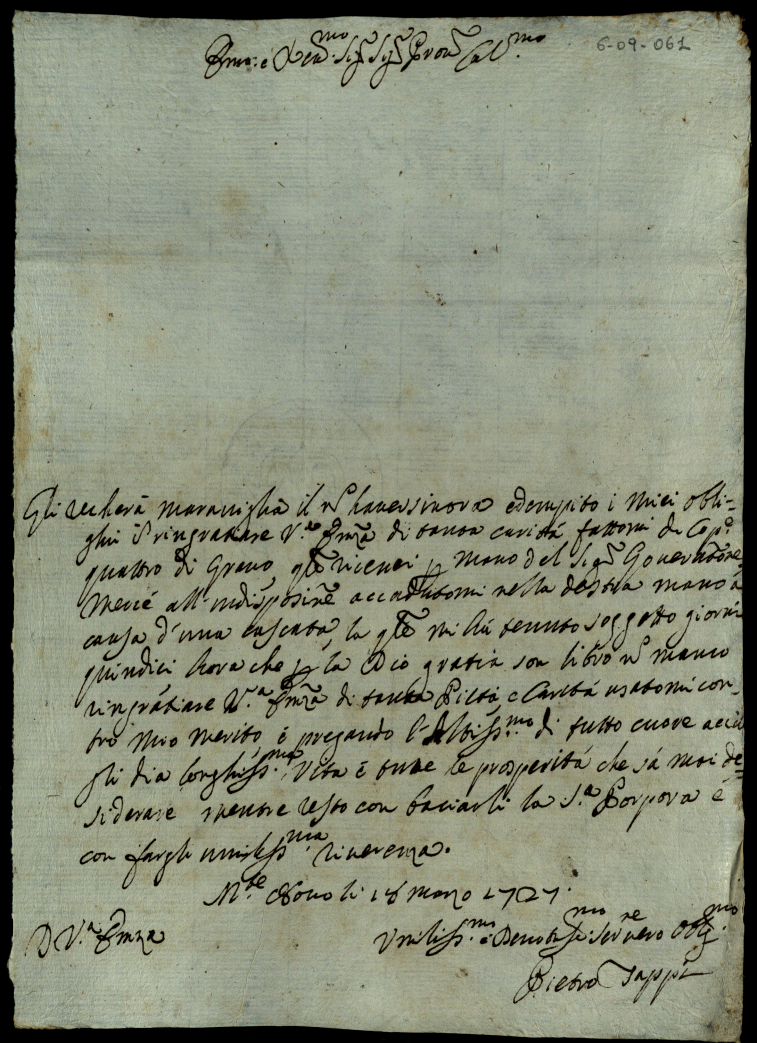 Emo: e Rev.mo Sig.r Sig.r Pron Col.mo
6-09-061
Gli recherà maraviglia il n haversinora adempito i miei obli-
ghi in ringratiare V.a Emza di tanta carità fattomi di Cop.e
quattro di Grano qle ricevei p mano del Sig.r Governatore
Mercè all'indisposine accadutomi nella destra mano à
causa d'una cascata, la qle mi hà tenuto soggetto giorni
quindici hora che p la Dio gratia son libro n manco
ringratiare V.a Emza di tanta Pietà e Carità usatomi con-
tro mio merito è pregando l'Altiss.mo di tutto cuore acciò
gli dia longhiss.ma Vita è tutte le prosperità che sà mai de=
siderare mentre resto con baciarli la S.a Porpora è
con fargli umiliss.ma riverenza.
M.te Novo li 18 marzo 1727.
D V.a Emza
Umiliss.mo e Devotiss.mo Ser.re vero Obg.mo
Pietro Tappi